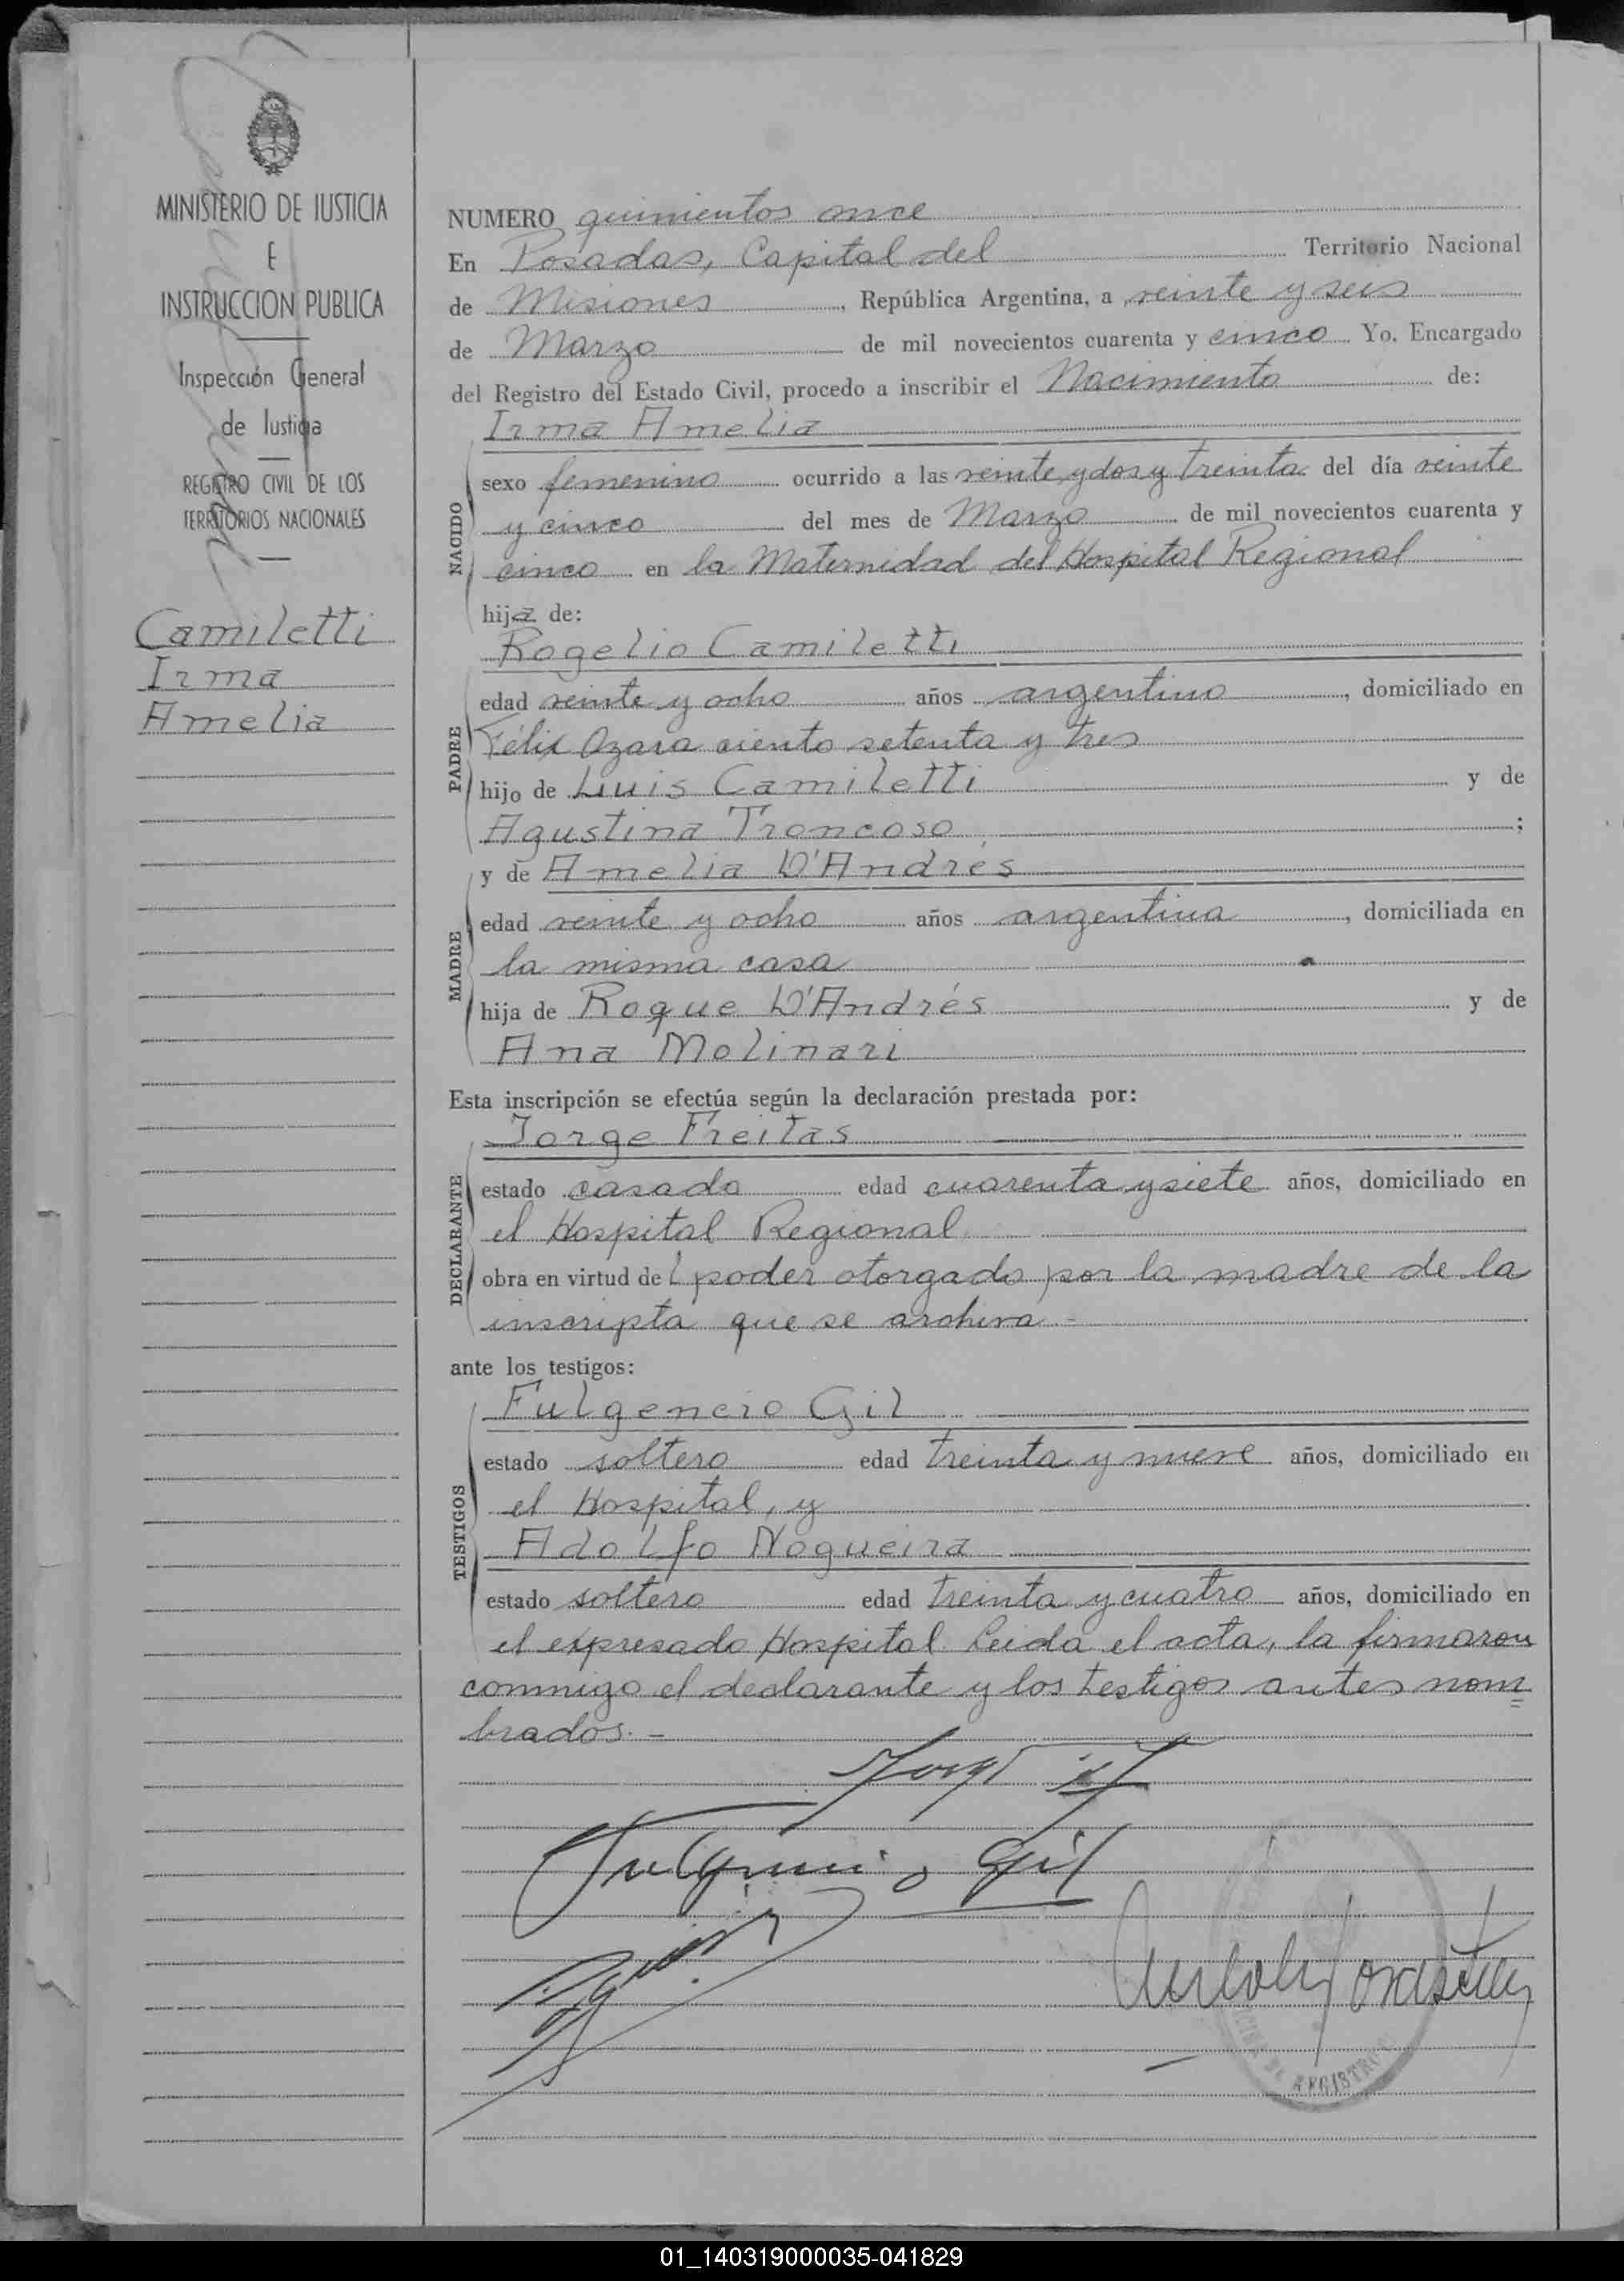 MINISTERIO DE JUSTICIA
E
INSTRUCCION PUBLICA
Inspección General
de Justicia
REGISTRO CIVIL DE LOS
TERRITORIOS NACIONALES
Camiletti
Irma
Amelia
NUMERO quinientos once
En Posadas, Capital del Territorio Nacional
de Misiones, República Argentina, a veinte y seis
de Marzo de mil novecientos cuarenta y cinco Yo, Encargado
del Registro del Estado Civil, procedo a inscribir el Nacimiento de:
Irma Amelia
NACIDO
sexo femenino ocurrido a las veinte y dos y treinta del día veinte
y cinco del mes de Marzo de mil novecientos cuarenta y
cinco en la Maternidad del Hospital Regional
hija de:
Rogelio Camiletti
PADRE
edad veinte y ocho años argentino, domiciliado en
Félix Azara ciento setenta y tres
hijo de Luis Camiletti y de
Agustina Troncoso;
y de Amelia D'Andrés
MADRE
edad veinte y ocho años argentina, domiciliada en
la misma casa
hija de Roque D'Andrés y de
Ana Molinari
Esta inscripción se efectúa según la declaración prestada por:
Jorge Freitas
DECLARANTE
estado casado edad cuarenta y siete años, domiciliado en
el Hospital Regional
obra en virtud del poder otorgado por la madre de la
inscripta que se archiva.-
ante los testigos:
Fulgencio Gil
TESTIGOS
estado soltero edad treinta y nueve años, domiciliado en
el Hospital, y
Adolfo Nogueira
estado soltero edad treinta y cuatro años, domiciliado en
el expresado Hospital. Leida el acta, la firmaron
conmigo el declarante y los testigos antes nom=
brados.-
Fulgencio Gil
REGISTRO
01_140319000035-041829